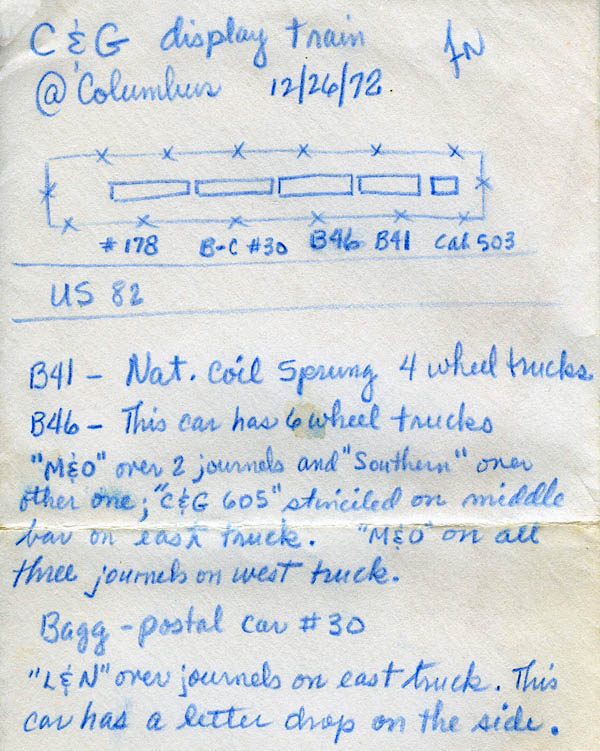 C&G display train
JN
@ Columbus 12/26/72.
#178 B-C #30 B46 B41 Cab 503
US 82
B41 - Nat. Coil Sprung 4 wheel trucks
B46 - This car has 6 wheel trucks
"M&O" over 2 journels and "Southern" over
other one; "C&G 605" stinciled on middle
bar on east truck. "M&O" on all
three journels on west truck.
Bagg - postal car #30
"L&N" over journels on east truck. This
car has a letter drop on the side.